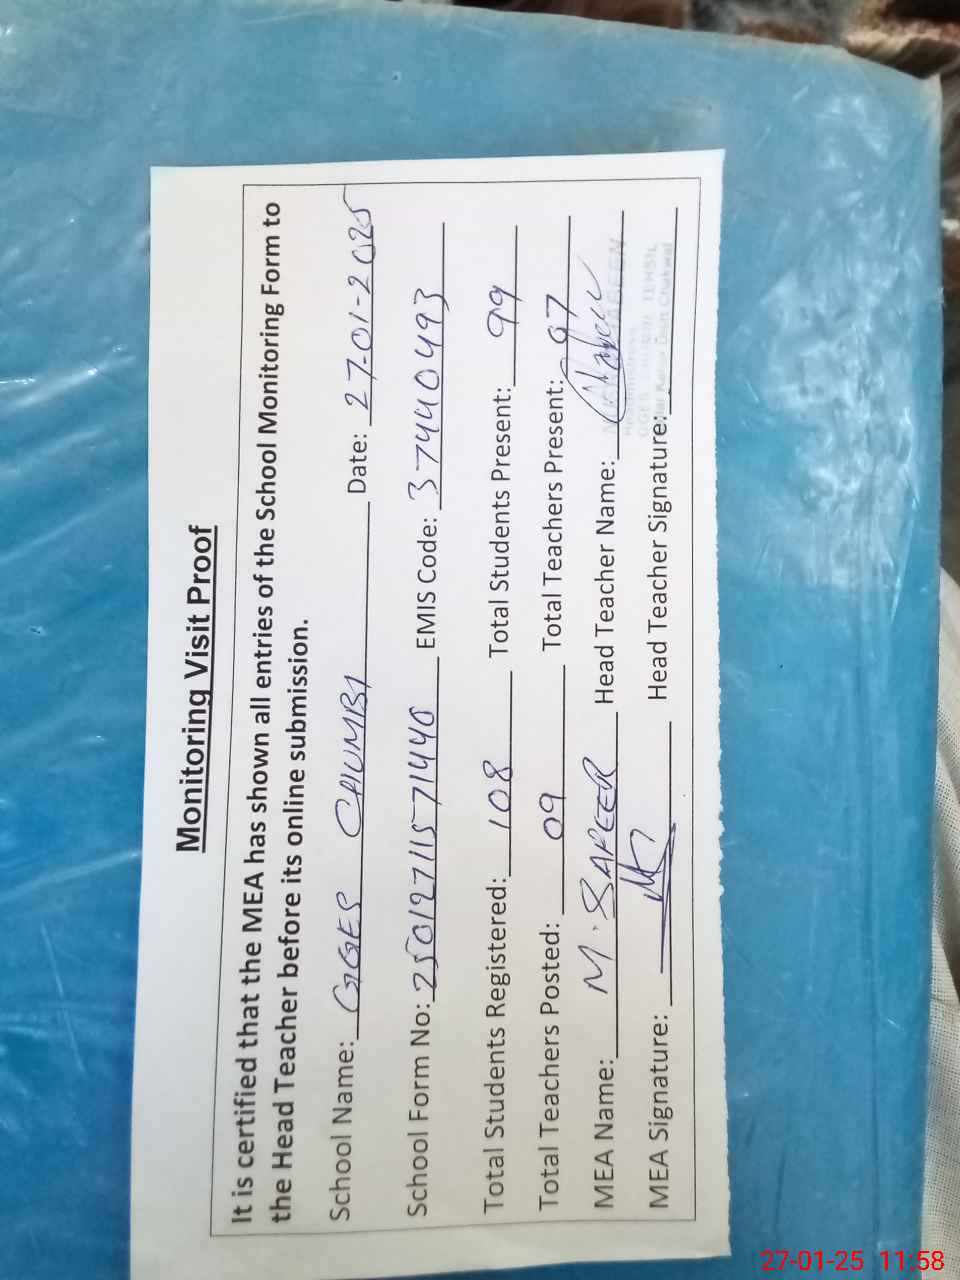 Monitoring Visit Proof
It is certified that the MEA has shown all entries of the School Monitoring Form to
the Head Teacher before its online submission.
School Name: GGES CHUMBI Date: 27-01-2025
School Form No: 25012711571440 EMIS Code: 37440493
Total Students Registered: 108 Total Students Present: 99
Total Teachers Posted: 09 Total Teachers Present: 07
MEA Name: M. SAFEER Head Teacher Name:
MEA Signature: Head Teacher Signature:
27-01-25 11:58